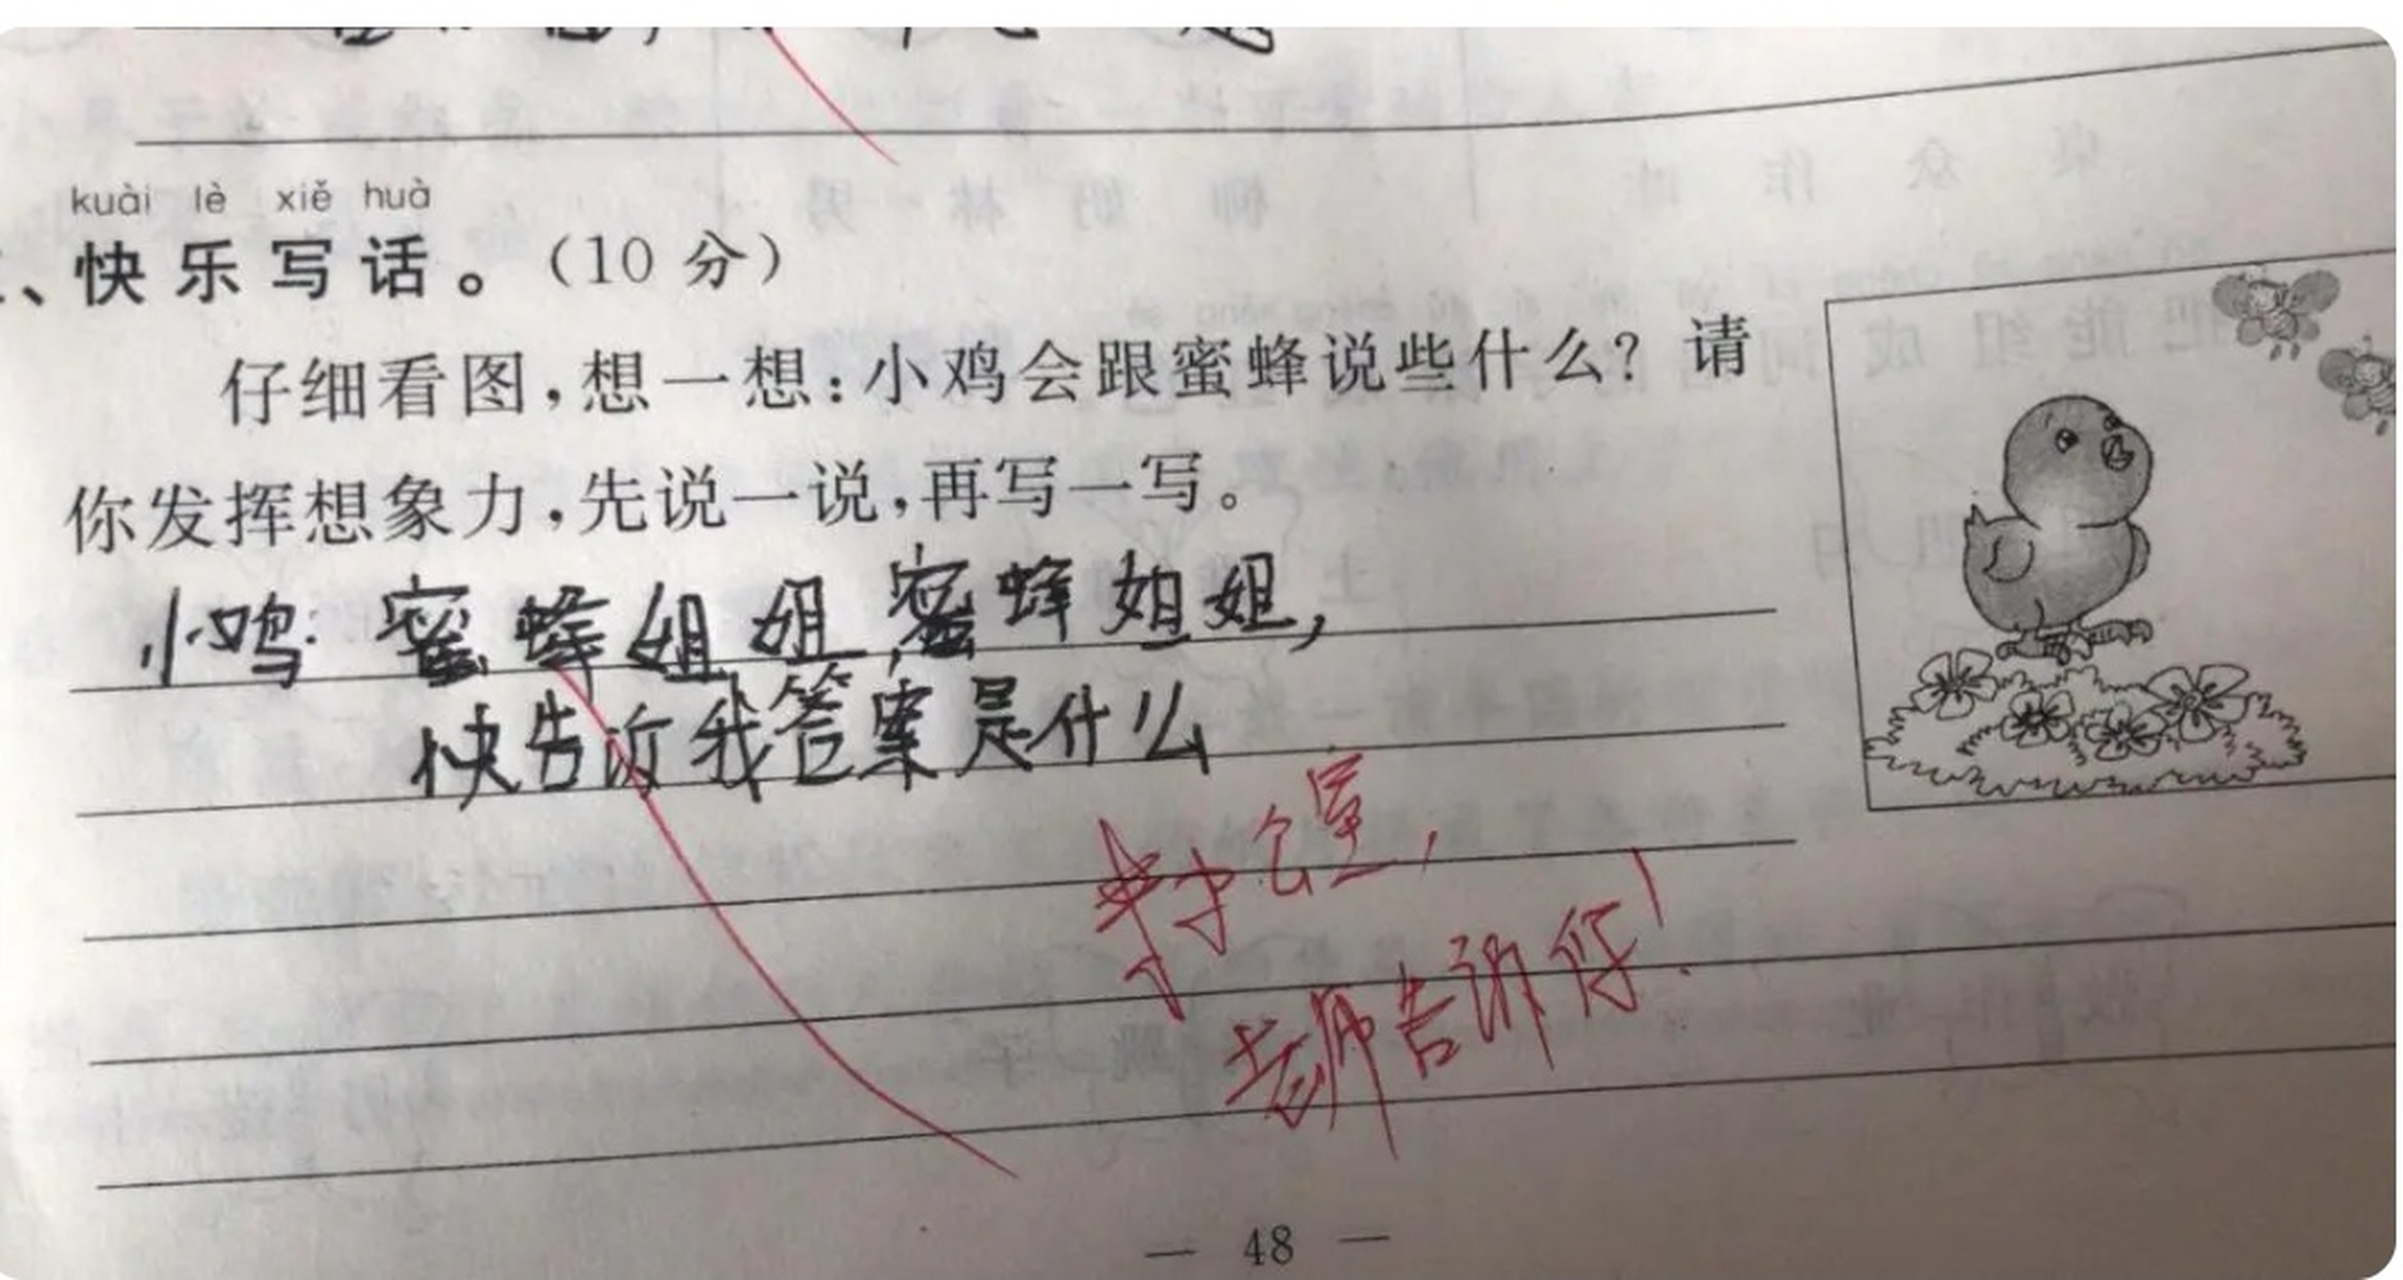 kuài lè xiě huà
、快乐写话。（10 分）
仔细看图，想一想：小鸡会跟蜜蜂说些什么？请
你发挥想象力，先说一说，再写一写。
小鸡：蜜蜂姐姐，蜜蜂姐姐，
快告诉我答案是什么
来办公室，
老师告诉你！
— 48 —